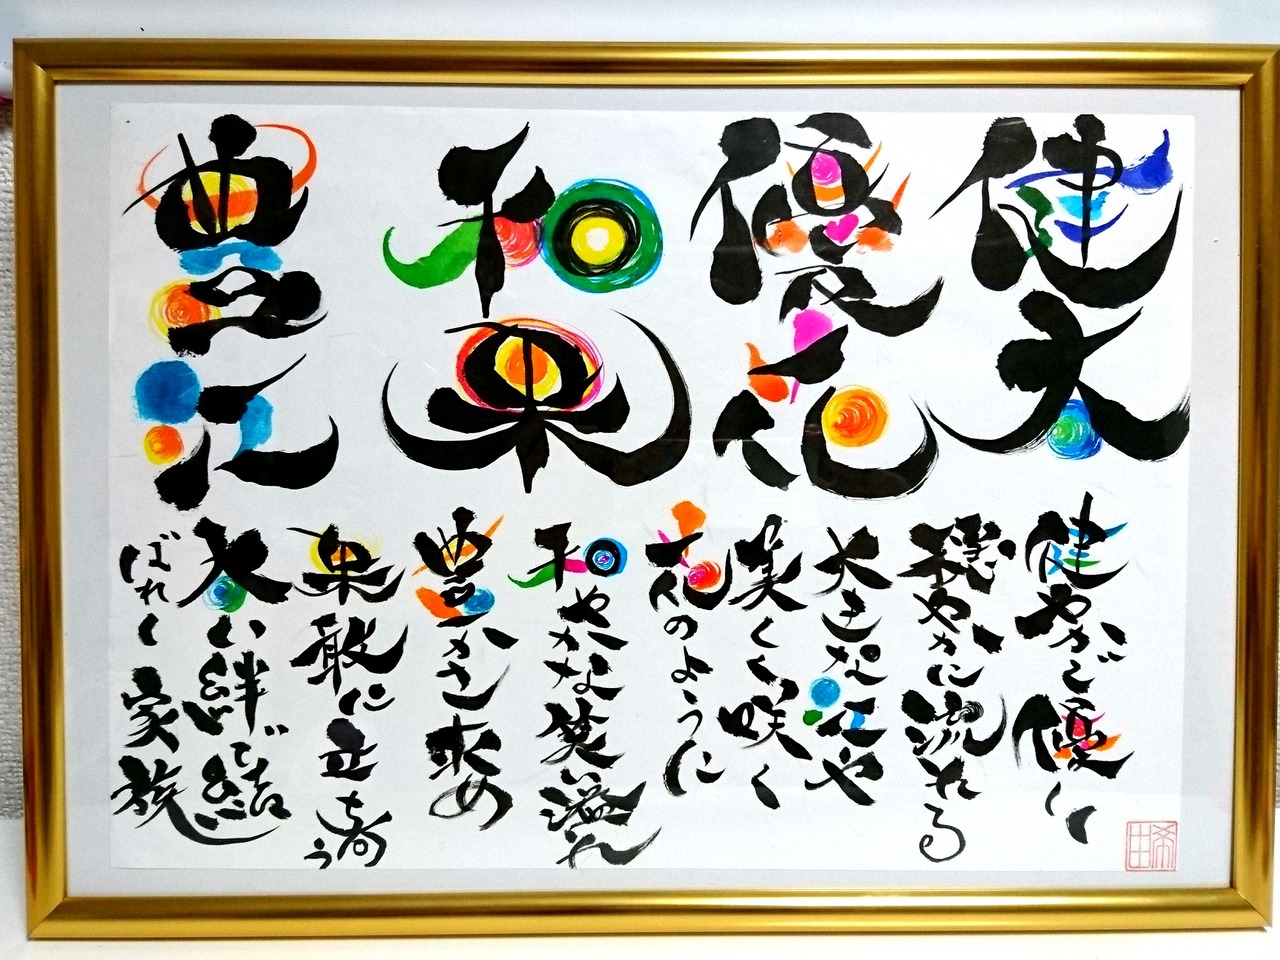 健太
優花
和果
豊江
健やかで優しく
穏やかに流れる
大きな江や
美しく咲く
花のように
和やかな笑い溢れ
豊かさ求め
果敢に立ち向う
太い絆で結
ばれし家族